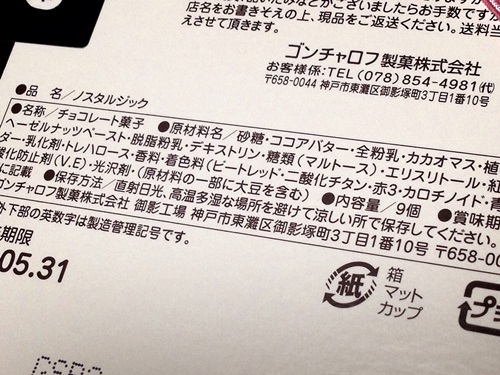 店名をお書きそえの上、現品をご返送ください。送料当
えさせて頂きます。
ゴンチャロフ製菓株式会社
お客様係:TEL(078)854-4981(代)
〒658-0044 神戸市東灘区御影塚町3丁目1番10号
●品 名/ノスタルジック
●名称/チョコレート菓子 ●原材料名/砂糖・ココアバター・全粉乳・カカオマス・植
ヘーゼルナッツペースト・脱脂粉乳・デキストリン・糖類(マルトース)・エリスリトール・紅
ダー・乳化剤・トレハロース・香料・着色料(ビートレッド・二酸化チタン・赤3・カロチノイド・青
酸化防止剤(V.E)・光沢剤・(原材料の一部に大豆を含む) ●内容量/9個 ●賞味期
に記載 ●保存方法/直射日光、高温多湿な場所を避けて涼しい所で保存してください。
ゴンチャロフ製菓株式会社 御影工場 神戸市東灘区御影塚町3丁目1番10号 〒658-00
外下部の英数字は製造管理記号です。
期限
05.31
紙
箱
マット
カップ
プ